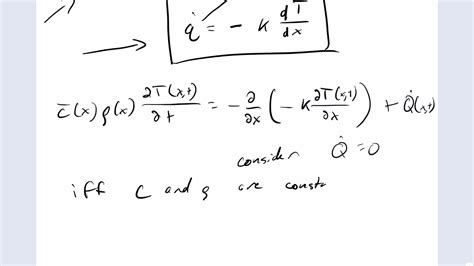 q̇ = - k dT/dx
c̄(x) ρ(x) ∂T(x,t)/∂t = - ∂/∂x (-k ∂T(x,t)/∂x) + Q̇(x,t)
consider Q̇ = 0
iff c and ρ are consta